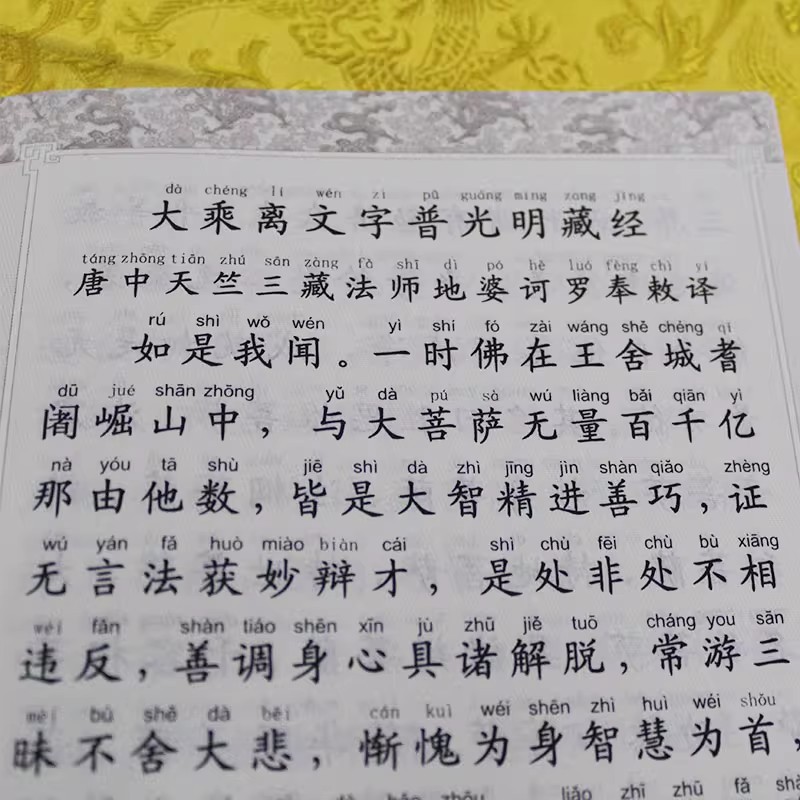 dà chéng lí wén zì pǔ guāng míng zàng jīng
大乘离文字普光明藏经
táng zhōng tiān zhú sān zàng fǎ shī dì pó hē luó fèng chì yì
唐中天竺三藏法师地婆诃罗奉敕译
rú shì wǒ wén yì shí fó zài wáng shě chéng qí
如是我闻。一时佛在王舍城耆
dū jué shān zhōng yǔ dà pú sà wú liàng bǎi qiān yì
阇崛山中，与大菩萨无量百千亿
nà yóu tā shù jiē shì dà zhì jīng jìn shàn qiǎo zhèng
那由他数，皆是大智精进善巧，证
wú yán fǎ huò miào biàn cái shì chù fēi chù bù xiāng
无言法获妙辩才，是处非处不相
wéi fǎn shàn tiáo shēn xīn jù zhū jiě tuō cháng you sān
违反，善调身心具诸解脱，常游三
mèi bù shě dà bēi cán kuì wéi shēn zhì huì wéi shǒu
昧不舍大悲，惭愧为身智慧为首，
liǎo zhī zhū fǎ